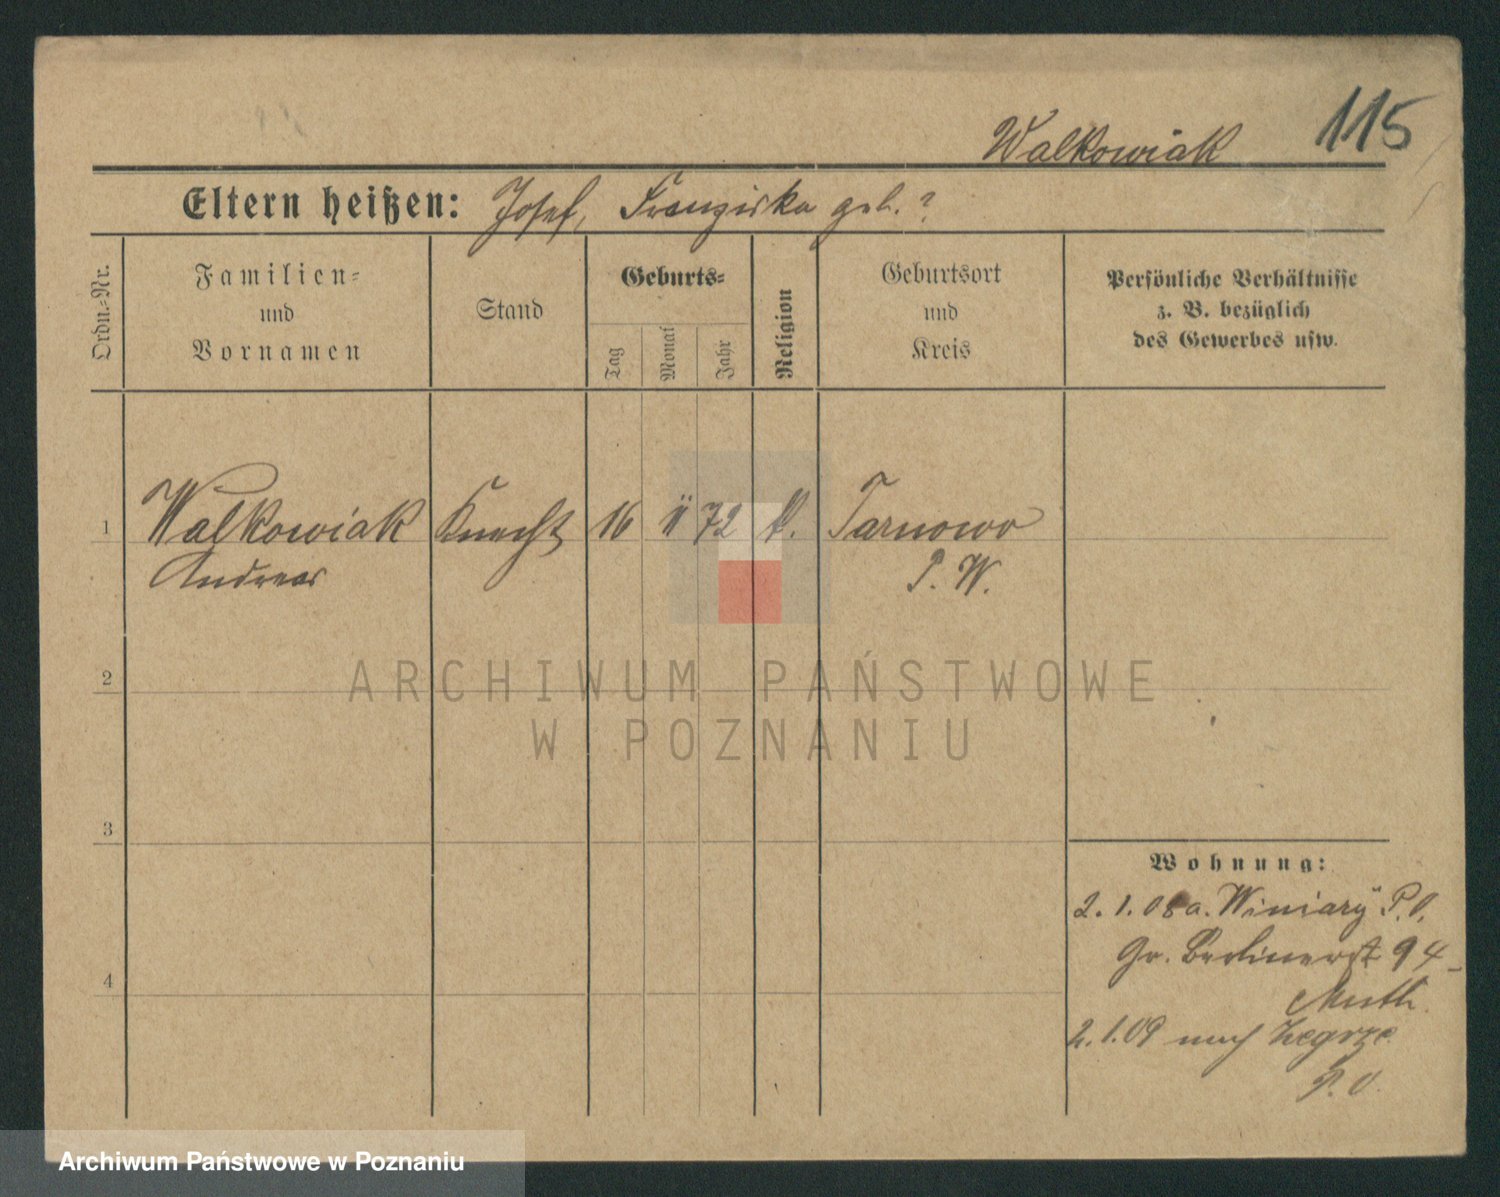 115
Walkowiak
Eltern heißen: Josef, Franziska geb. ?
Ordn.-Nr.
Familien-
und
Vornamen
Stand
Geburts-
Tag
Monat
Jahr
Religion
Geburtsort
und
Kreis
Persönliche Verhältnisse
z. B. bezüglich
des Gewerbes usw.
1 Walkowiak Knecht 16 11 72 k. Tarnowo
Andreas P. W.
2
ARCHIWUM PAŃSTWOWE
W POZNANIU
3
Wohnung:
2. 1. 08 a. Winiary P. O.
Gr. Berlinerst 94
4
Muth
2. 1. 09 nach Zegrze
P. O.
Archiwum Państwowe w Poznaniu